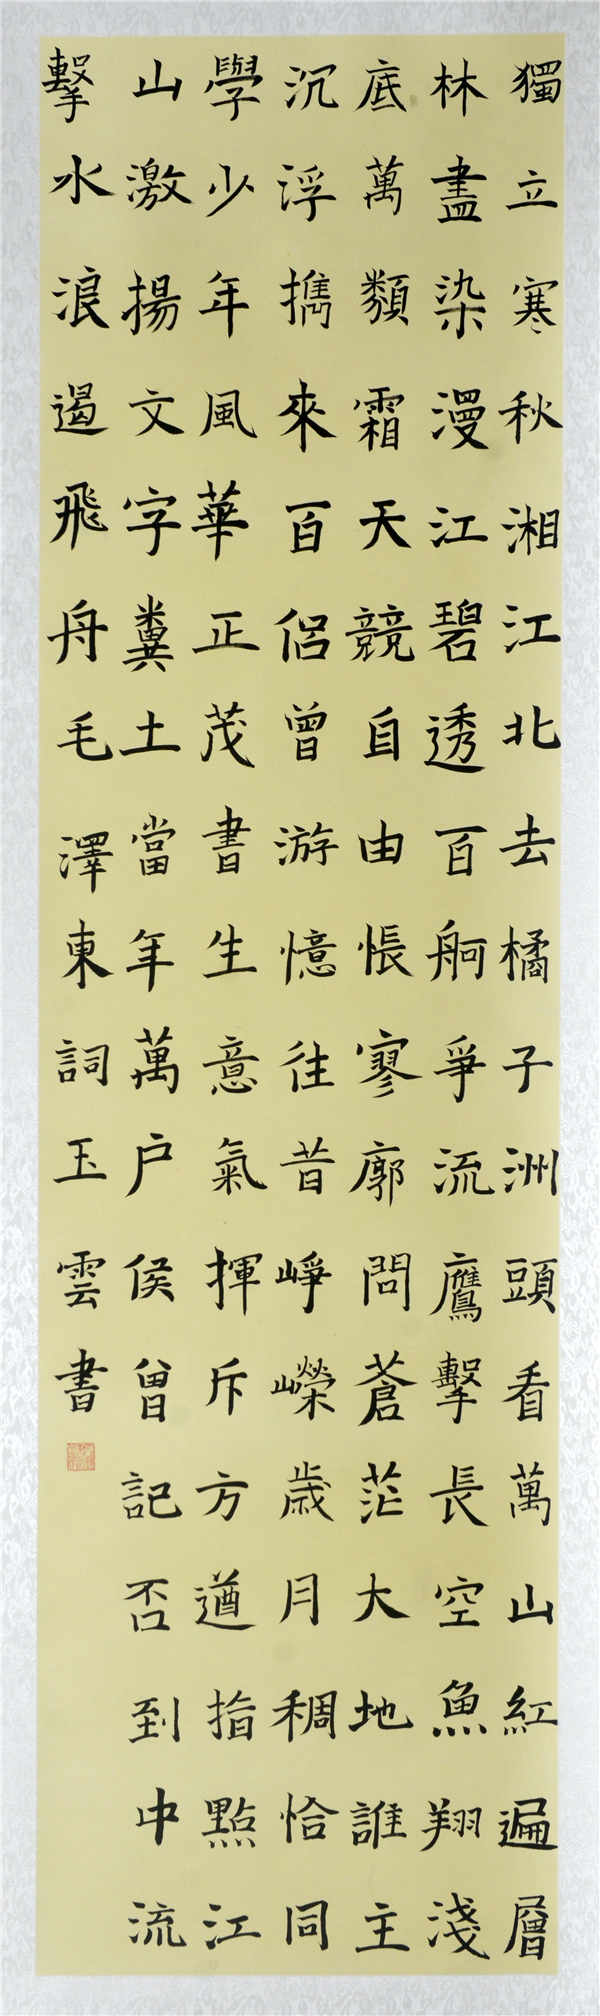 獨立寒秋湘江北去橘子洲頭看萬山紅遍層
林盡染漫江碧透百舸爭流鷹擊長空魚翔淺
底萬類霜天競自由悵寥廓問蒼茫大地誰主
沉浮攜來百侣曾游憶往昔崢嶸歲月稠恰同
學少年風華正茂書生意氣揮斥方遒指點江
山激揚文字糞土當年萬户侯曾記否到中流
擊水浪遏飛舟毛澤東詞玉雲書